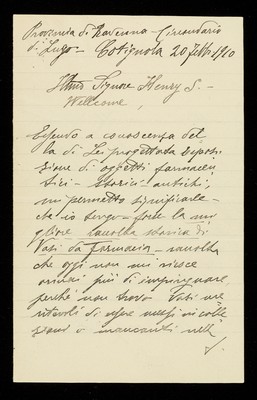 Provincia di Ravenna - Circondario
di Lugo - Cotignola 20 Febb. 1910
Illmo Signore Henry S. -
Wellcome,
Essendo a conoscenza del-
la di Lei progettata esposi-
zione di oggetti farmaceu-
tici - storici - antichi,
mi permetto significarle -
ch'io tengo - forse la mi-
gliore raccolta storica di
Vasi da farmacia - raccolta
che oggi non mi riesce
ormai più di impinguare,
perchè non trovo Vasi me-
ritevoli di essere messi in colle-
zione o mancanti nell